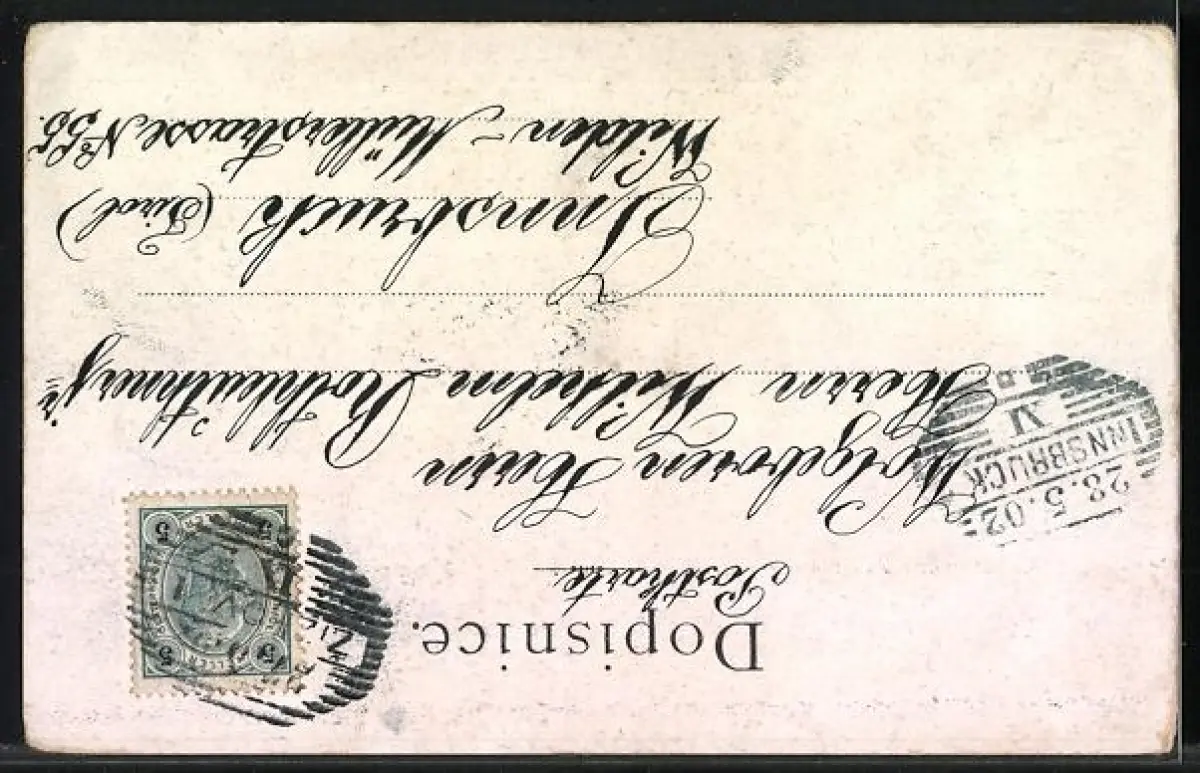 Dopisnice.
Postkarte
Wolgeboren Herrn
Herrn Wilhelm Rothleuthner jr
Innsbruck (Tirol)
Wilden - Müllerstrasse No 55.
28.5.02
INNSBRUCK
XI
5
5
5
5